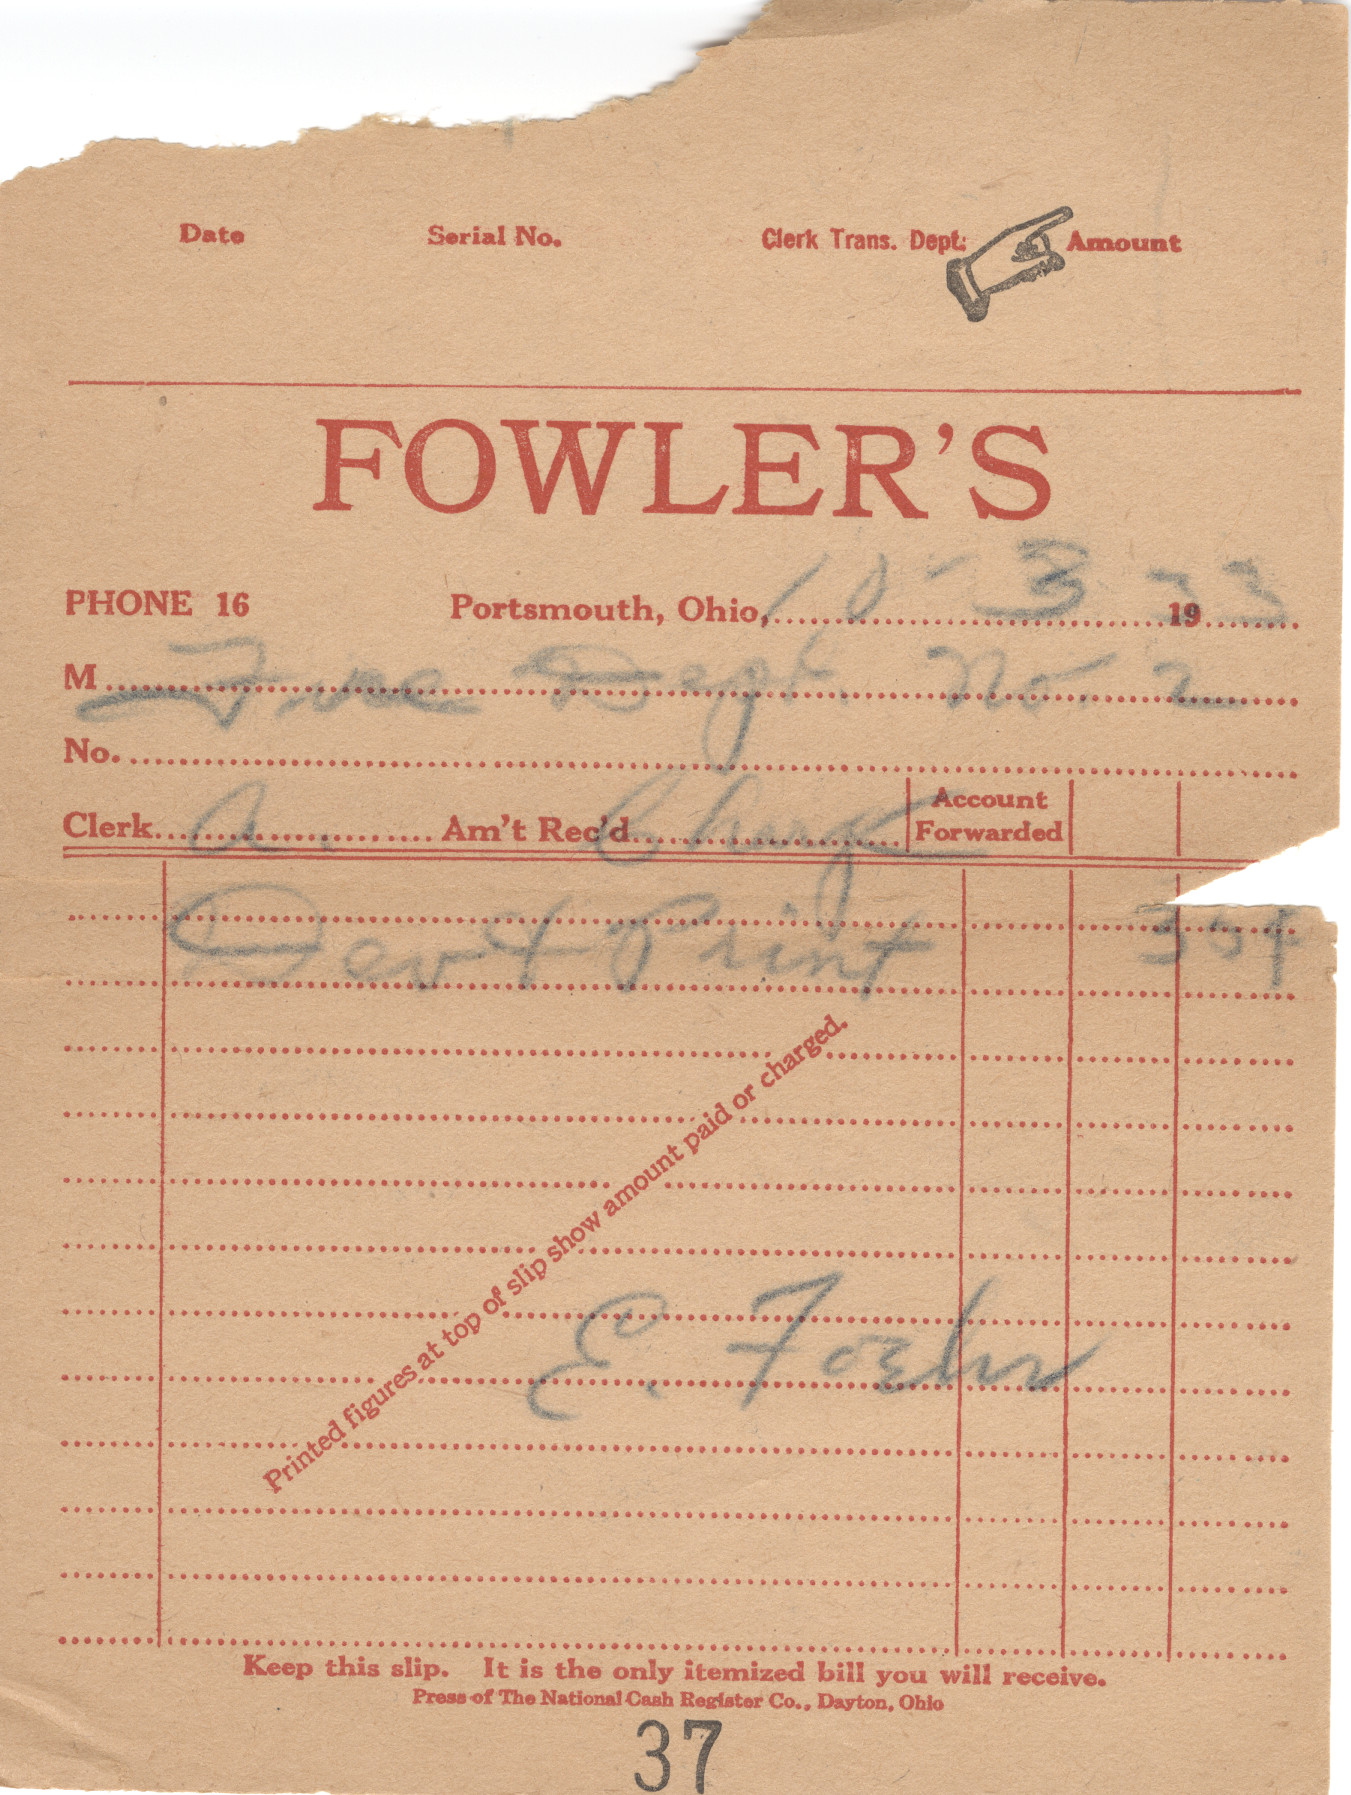 Date Serial No. Clerk Trans. Dept. Amount
FOWLER'S
PHONE 16 Portsmouth, Ohio, 10-3 1933
M Fire Dept. No. 2
No.
Clerk A. Am't Rec'd Chrg Account Forwarded
Dev & Print
Printed figures at top of slip show amount paid or charged.
E. Foehr
Keep this slip. It is the only itemized bill you will receive.
Press of The National Cash Register Co., Dayton, Ohio
37